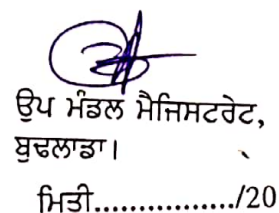 ਉਪ ਮੰਡਲ ਮੈਜਿਸਟਰੇਟ,
ਬੁਢਲਾਡਾ।
ਮਿਤੀ................./20